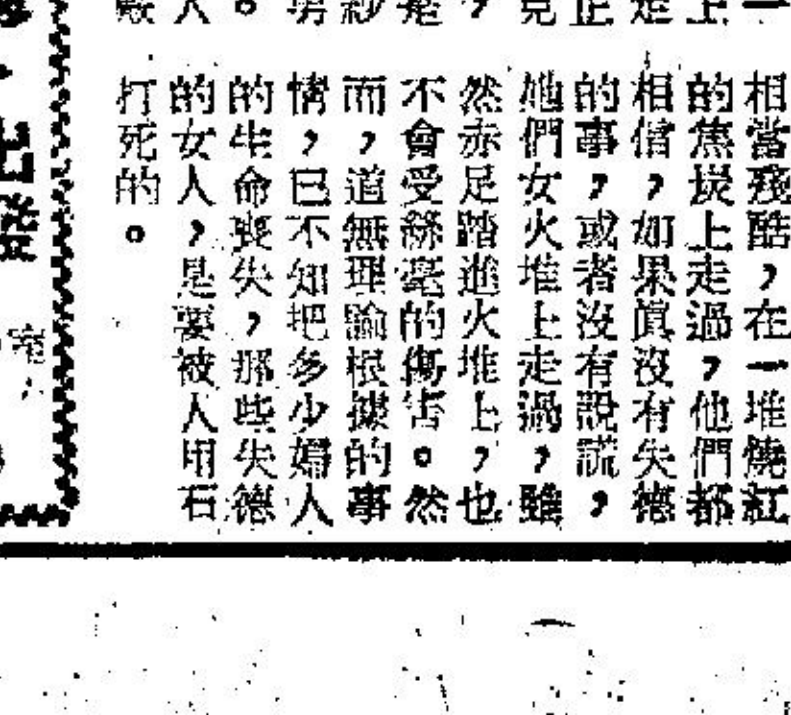 相當殘酷，在一堆燒紅
的焦炭上走過，他們都
相信，如果眞沒有失德
的事，或者沒有說謊，
她們女火堆上走過，雖
然赤足踏進火堆上，也
不會受絲毫的傷害。然
而，這無理論根據的事
情，已不知把多少婦人
的生命喪失，那些失德
的女人，是要被人用石
打死的。
出發